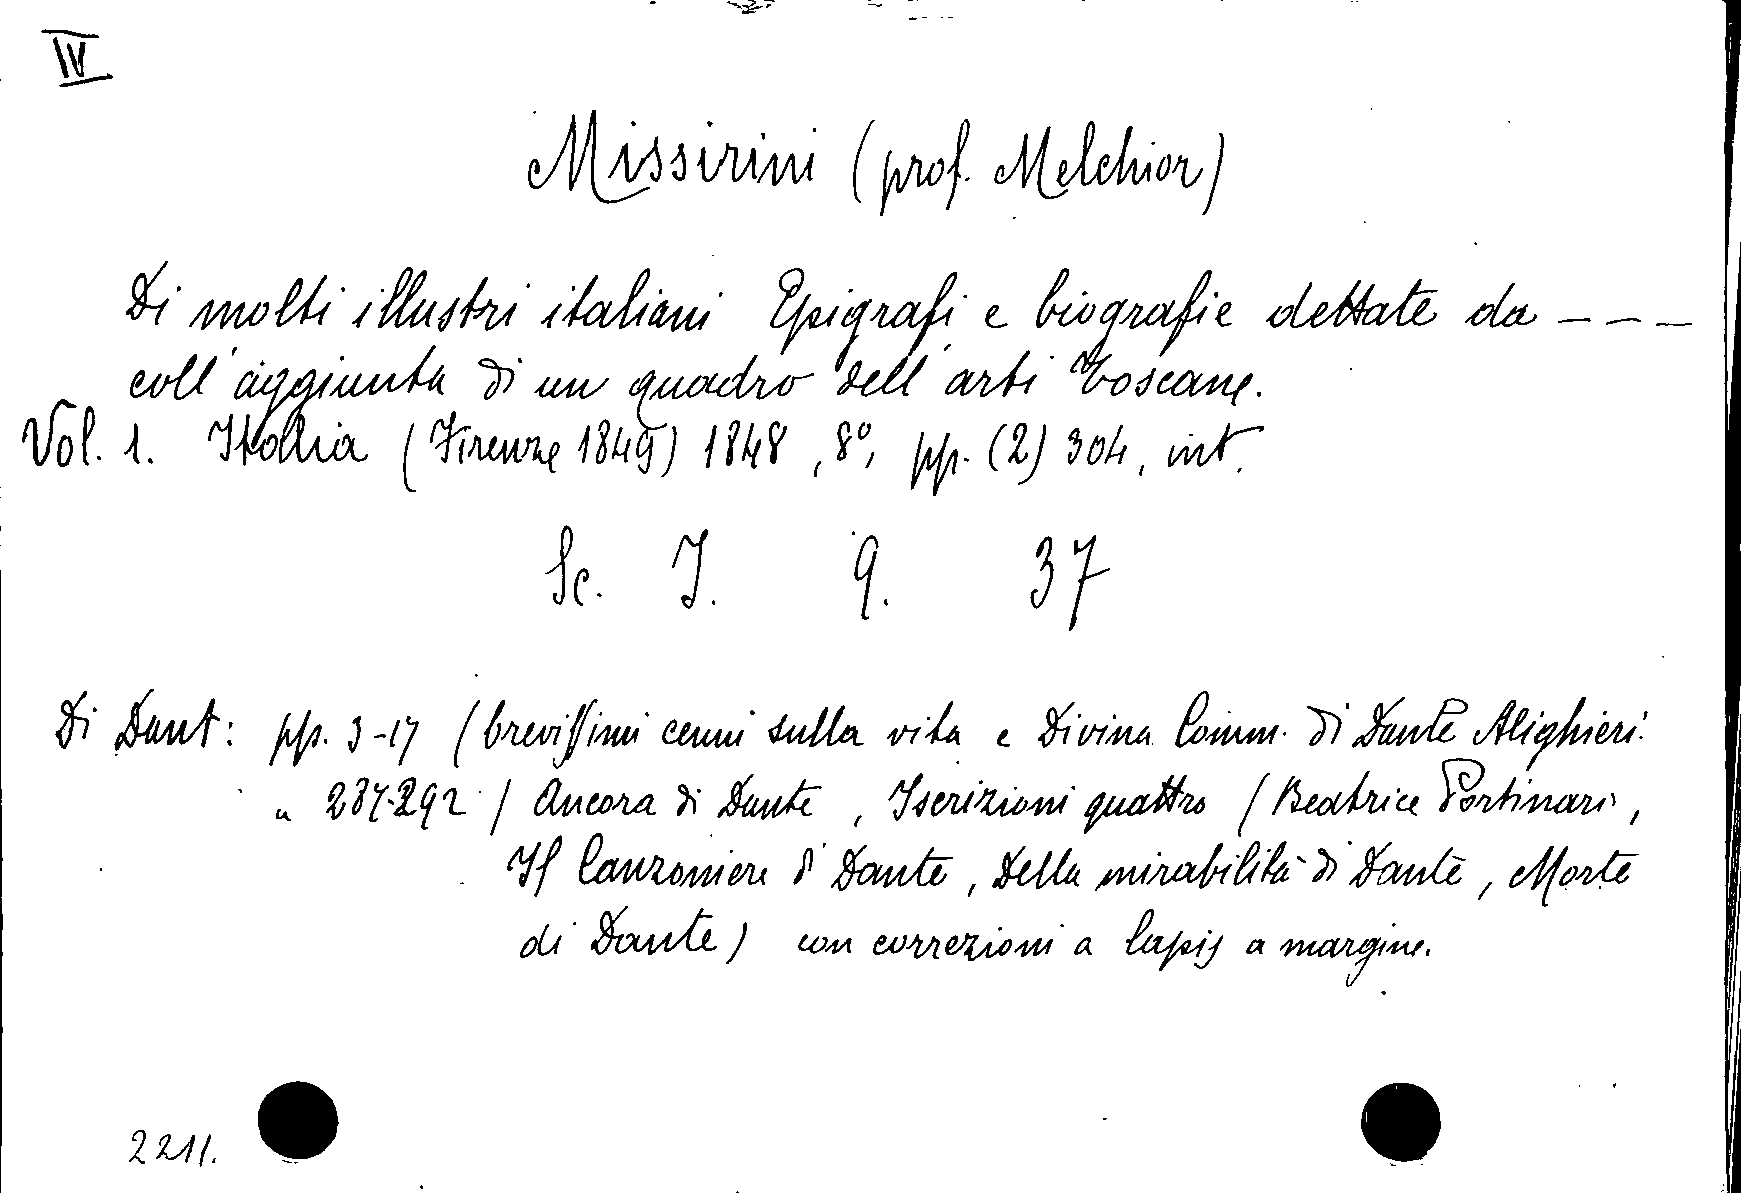 IV
Missirini (prof. Melchior)
Di molti illustri italiani Epigrafi e biografie dettate da ---
coll'aggiunta di un quadro dell'arti toscane.
Vol. 1. Italia (Firenze 1849) 1848, 8°, pp. (2) 304, int.
Sc. I. 9. 37
Di Dant: pp. 3-17 (brevissimi cenni sulla vita e Divina Comm. di Dante Alighieri.
" 287-292 / Ancora di Dante, Iscrizioni quattro (Beatrice Portinari,
Il Canzoniere di Dante, Della mirabilità di Dante, Morte
di Dante) con correzioni a lapis a margine.
2211.